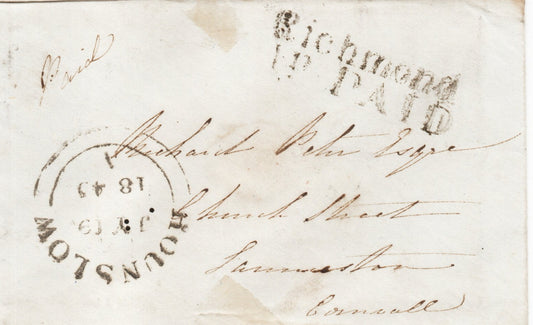 Paid
Richmond
1D PAID
Richard Peter Esqre
Church Street
Launceston
Cornwall
HOUNSLOW
JY 19
1843